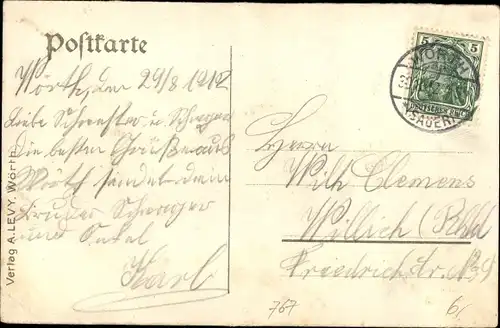 Postkarte
Wörth, den 29/8 1912
Liebe Schwester u. Schwager
Die besten Grüße aus
Wörth sendet dein
Bruder Schwager
und Onkel
Karl
Verlag A. LEVY, Wörth.
5 5
WÖRTH
(SAUER)
Herrn
Wilh Clemens
Willich (Rhld
Friedrichstr. No
767